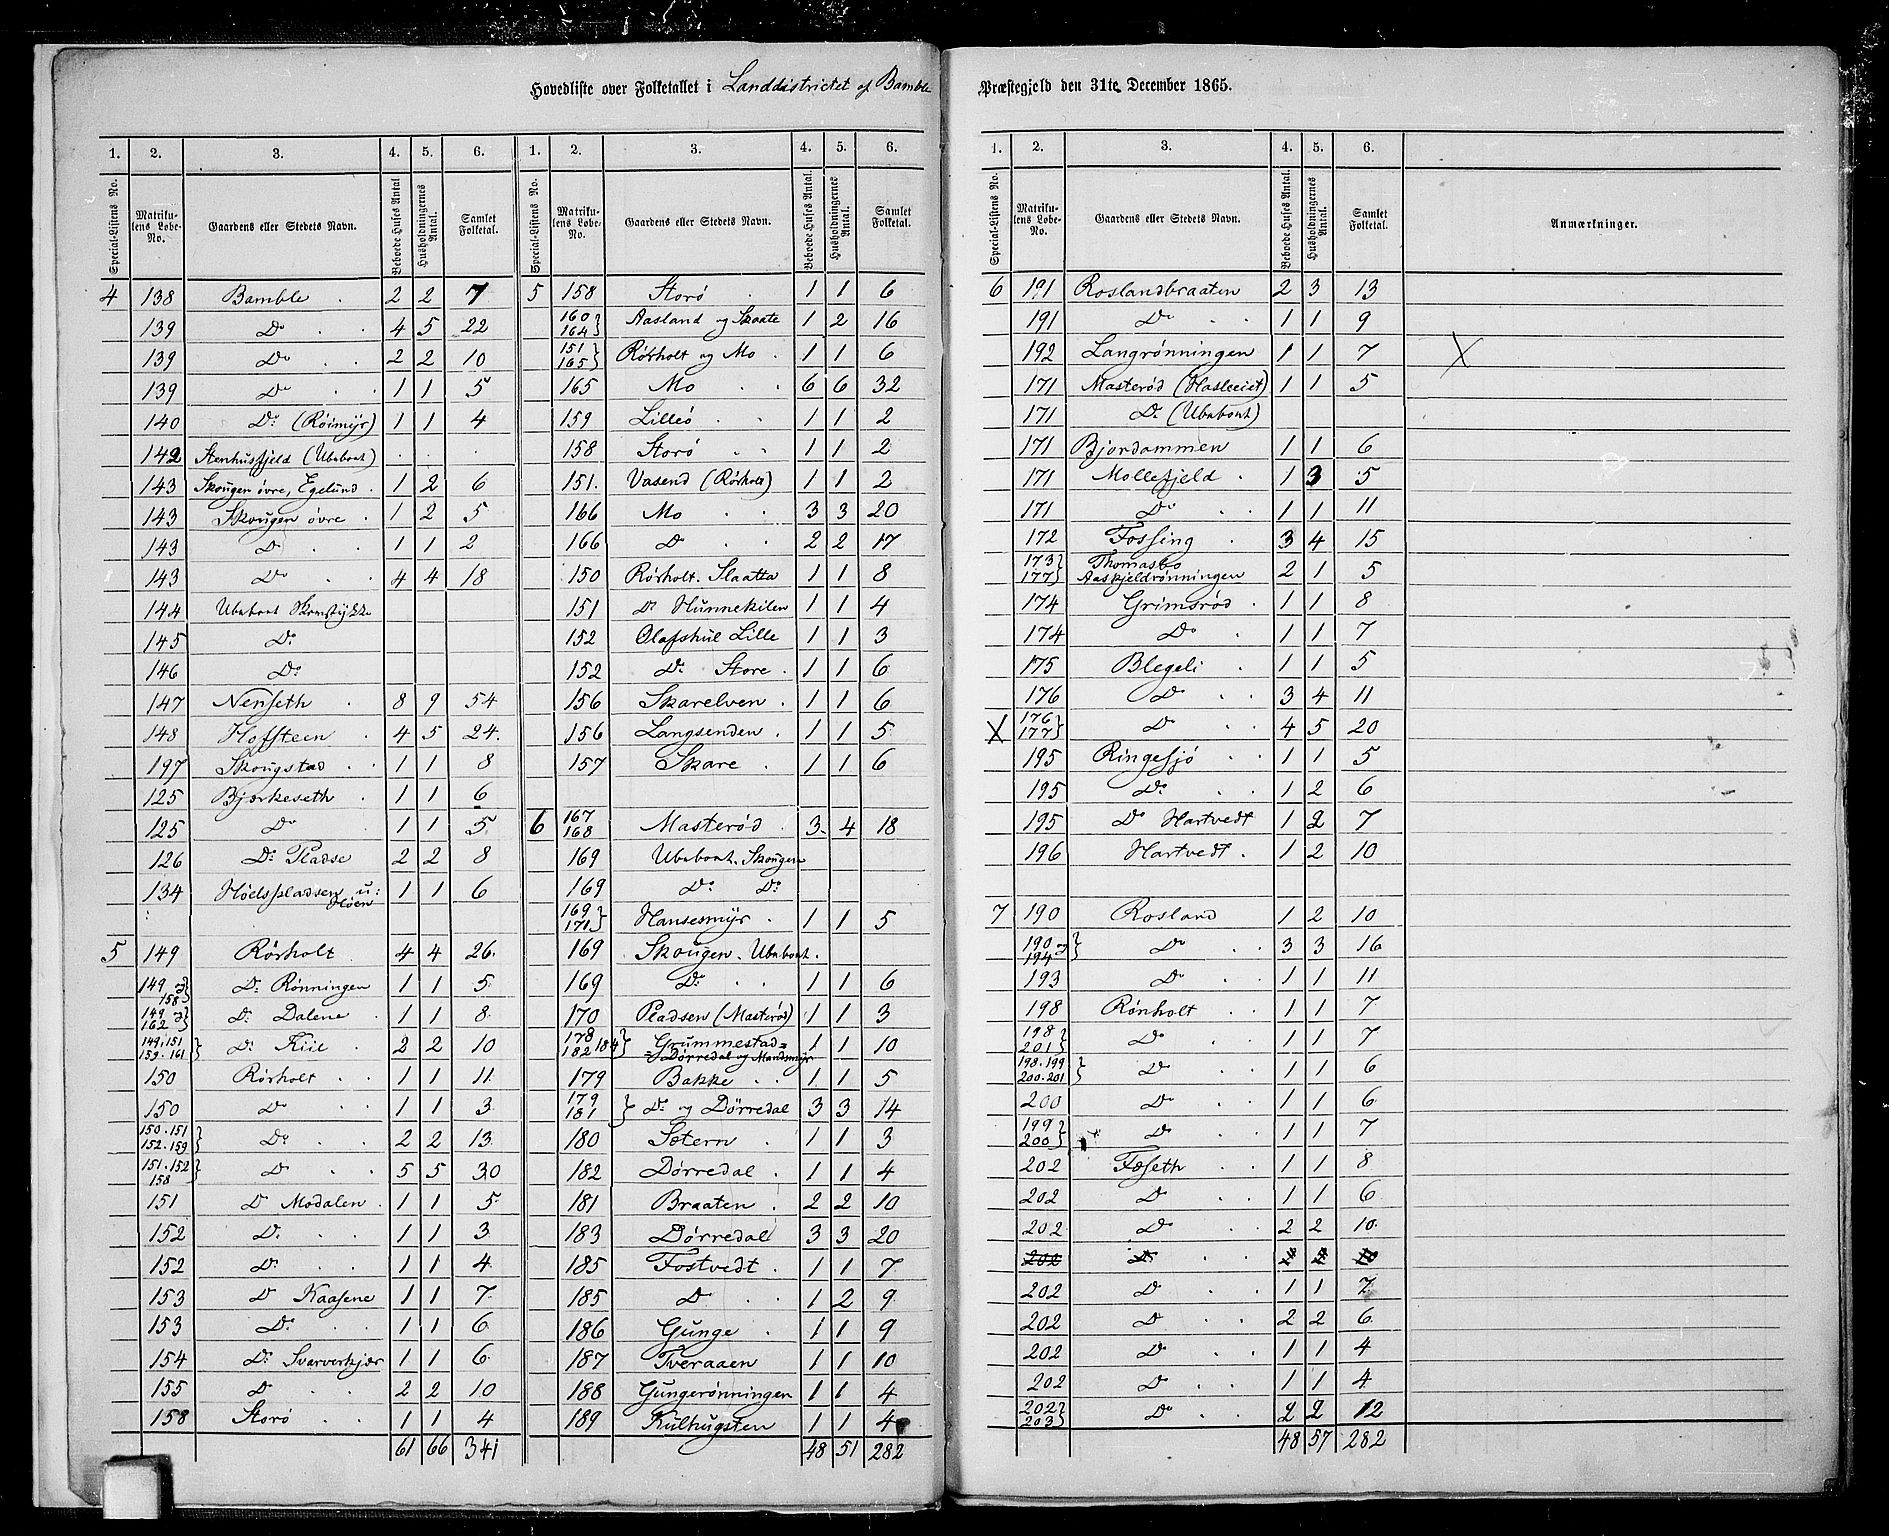 Hovedliste over Folketallet i Landdistrictet af Bamble
1. 2. 3. 4. 5. 6. 1. 2. 3. 4. 5. 6.
Special-Listens No. Matrikulens Løbe-No. Gaardens eller Stedets Navn. Beboede Huses Antal Husholdningernes Antal. Samlet Folketal. Special-Listens No. Matrikulens Løbe-No. Gaardens eller Stedets Navn. Beboede Huses Antal. Husholdningernes Antal. Samlet Folketal.
4 138 Bamble . 2 2 7
139 Do . . 4 5 22
139 Do . . 2 2 10
139 Do . . 1 1 5
140 Do (Røimyr) 1 1 4
142 Stenhusfjeld (Ubeboet) . . .
143 Skougen øvre, Egelund . 1 2 6
143 Skougen øvre . 1 2 5
143 Do . . 1 1 2
143 Do . . 4 4 18
144 Ubeboet Skovstykke
145 Do
146 Do
147 Nenseth . 8 9 54
148 Hofsteen . 4 5 24.
197 Skougstad . . 1 1 8
125 Bjerkeseth . 1 1 6
125 Do . 1 1 5
126 Do Pladse 2 2 8
134 Høelspladsen u: Høen 1 1 6
5 149 Rørholt . 4 4 26.
149 og 158 Do Rønningen 1 1 5
149 og 162 Do Dalene . 1 1 8
149.151 159.161 Do Kiil . 2 2 10
150 Rørholt . . 1 1 11
150 Do . . 1 1 3
150.151 152.159 Do . . 2 2 13
151.152 158 Do . . 5 5 30
151 Do Modalen . 1 1 5
152 Do . . 1 1 3
152 Do . . 1 1 4
153 Do Kaasene 1 1 7
153 Do . . 1 1 6
154 Do Svarverkjær 1 1 6
155 Do . . 2 2 10
158 Storø . . 1 1 4
61 66 341
5 158 Storø . 1 1 6
160 164 Aasland og Skaate 1 2 16
151 165 Rørholt og Mo . 1 1 6
165 Mo . . 6 6 32
159 Lilleø . . 1 1 2
158 Storø . . 1 1 2
151. Vasend (Rørholt) 1 1 2
166 Mo . . 3 3 20
166 Do . . 2 2 17
150 Rørholt. Slaatta 1 1 8
151 Do Hunnekilen 1 1 4
152 Olafshul Lille 1 1 3
152 Do Store . 1 1 6
156 Skarelven . 1 1 6
156 Langsenden . 1 1 5
157 Skare . 1 1 6
6 167 168 Masterød . 3 4 18
169 Ubeboet. Skougen
169 Do Do
169 171 Hansesmyr . 1 1 5
169 Skougen. Ubeboet.
169 Do . . 1 1 6
170 Pladsen (Masterød) 1 1 3
178 182 184 Grummestad= =Dørredal og Mandsmyr 1 1 10
179 Bakke . . 1 1 5
179 181 Do og Dørredal 3 3 14
180 Sætern . 1 1 3
182 Dørredal . 1 1 4
181 Braaten . 2 2 10
183 Dørredal 3 3 20
185 Fostvedt . 1 1 7
185 Do . . 1 2 9
186 Gunge . 1 1 9
187 Tveraaen 1 1 10
188 Gungerønningen 1 1 4
189 Kulhugsten 1 1 4
48 51 282
Præstegjeld den 31te December 1865.
1. 2. 3. 4. 5. 6.
Special-Listens No. Matrikulens Løbe-No. Gaardens eller Stedets Navn. Beboede Huses Antal. Husholdningernes Antal. Samlet Folketal. Anmærkninger.
6 191 Roslandbraaten 2 3 13
191 Do . . 1 1 9
192 Langrønningen 1 1 7 X
171 Masterød (Hasleeiet) 1 1 5
171 Do (Ubeboet)
171 Bjordammen 1 1 6
171 Mollefjeld . 1 3 5
171 Do . . 1 1 11
172 Fossing . 3 4 15
173 177 Thomasbo Aaskjeldrønningen 2 1 5
174 Grimsrød . 1 1 8
174 Do . 1 1 7
175 Blegeli . 1 1 5
176 Do . . 3 4 11
X 176 177 Do . . 4 5 20
195 Ringesjø . . 1 1 5
195 Do . . 1 2 6
195 Do Hartvedt 1 2 7
196 Hartvedt . 1 2 10
7 190 Rosland 1 2 10
190 og 194 Do . . 3 3 16
193 Do . . 1 1 11
198 Rønholt . . 1 1 7
198 201 Do . . 1 1 7
198.199 200.201 Do . . 1 1 6
200 Do . . 1 1 6
199 200 Do . . 1 1 7
202 Fæseth . . 1 1 8
202 Do . . 1 1 6
202 Do . . 2 2 10
202 Do . . 2 2 10
202 Do . . 1 1 7
202 Do . . 2 2 6
202 Do . . 1 1 4
202 Do . . 1 1 4
202 203 Do . . 2 2 12
48 57 282